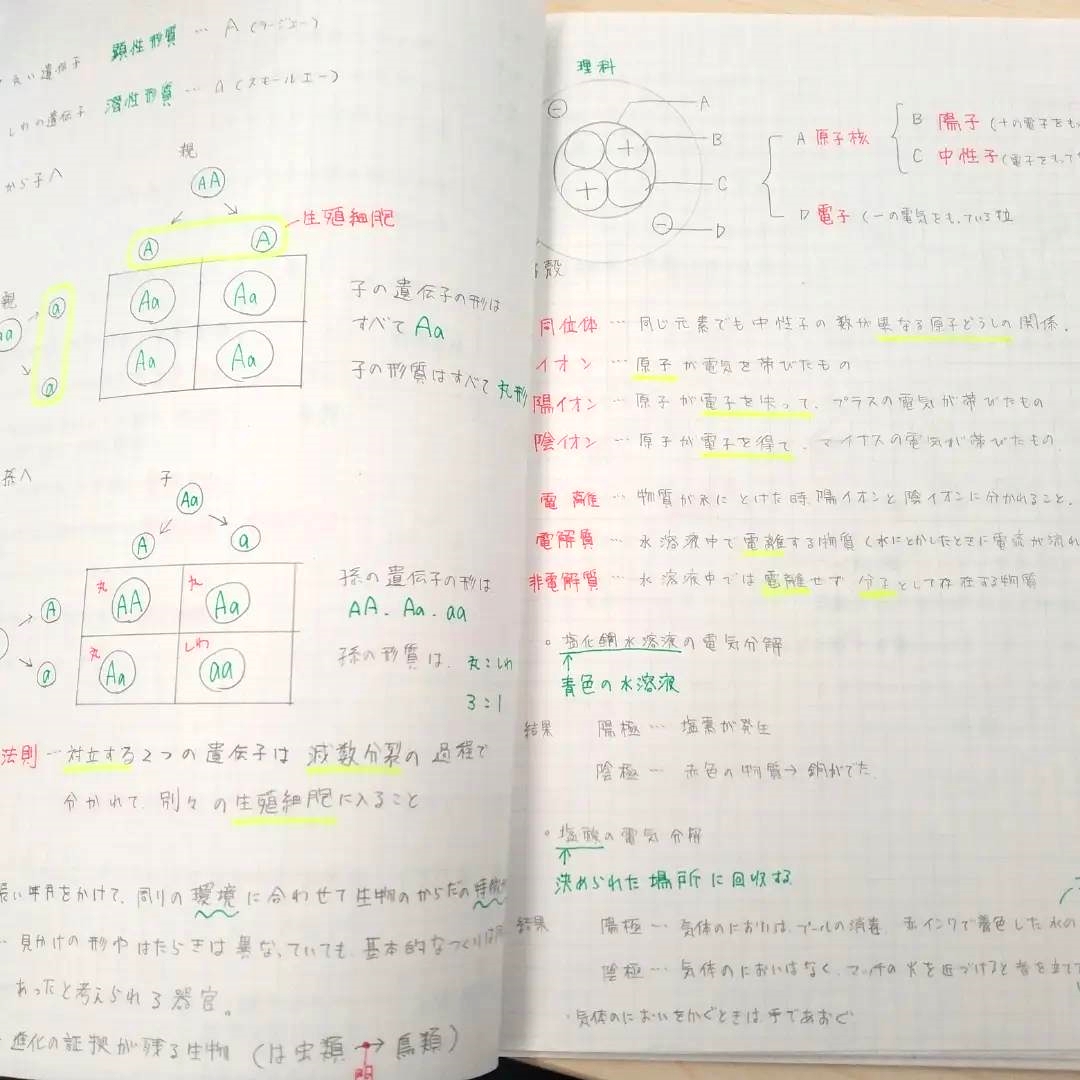 丸い遺伝子 顕性形質 … A (ラージエー)
しわの遺伝子 潜性形質 … a (スモールエー)
から子へ
親
AA
生殖細胞
A A
親
aa
a
a
Aa Aa
Aa Aa
子の遺伝子の形は
すべて Aa
子の形質はすべて 丸形
孫へ
子
Aa
A a
A
a
丸 AA 丸 Aa
丸 Aa しわ aa
孫の遺伝子の形は
AA. Aa. aa
孫の形質は、丸:しわ
3:1
法則 … 対立する2つの遺伝子は 減数分裂の過程で
分かれて、別々の生殖細胞に入ること
長い年月をかけて、周りの環境に合わせて生物のからだの特徴
… 見かけの形やはたらきは異なっていても、基本的なつくりは
あったと考えられる器官。
進化の証拠が残る生物 (は虫類 → 鳥類)
理科
A
B
C
D
A 原子核
B 陽子 (+の電子をも
C 中性子 (電子をもって
D 電子 (-の電気をもっている粒
殻
同位体 … 同じ元素でも中性子の数が異なる原子どうしの関係.
イオン … 原子が電気を帯びたもの
陽イオン … 原子が電子を失って、プラスの電気が帯びたもの
陰イオン … 原子が電子を得て、マイナスの電気が帯びたもの
電離 … 物質が水にとけた時、陽イオンと陰イオンに分かれること.
電解質 … 水溶液中で電離する物質 (水にとかしたときに電流が流れ
非電解質 … 水溶液中では電離せず 分子として存在する物質
。塩化銅水溶液の電気分解
↑
青色の水溶液
結果 陽極 … 塩素が発生
陰極 … 赤色の物質→銅がでた.
。塩酸の電気分解
↑
決められた場所に回収する
結果 陽極 … 気体のにおいは、プールの消毒、赤インクで着色した水の
陰極 … 気体のにおいはなく、マッチの火を近づけると音を立て
・気体のにおいをかぐときは手であおぐ